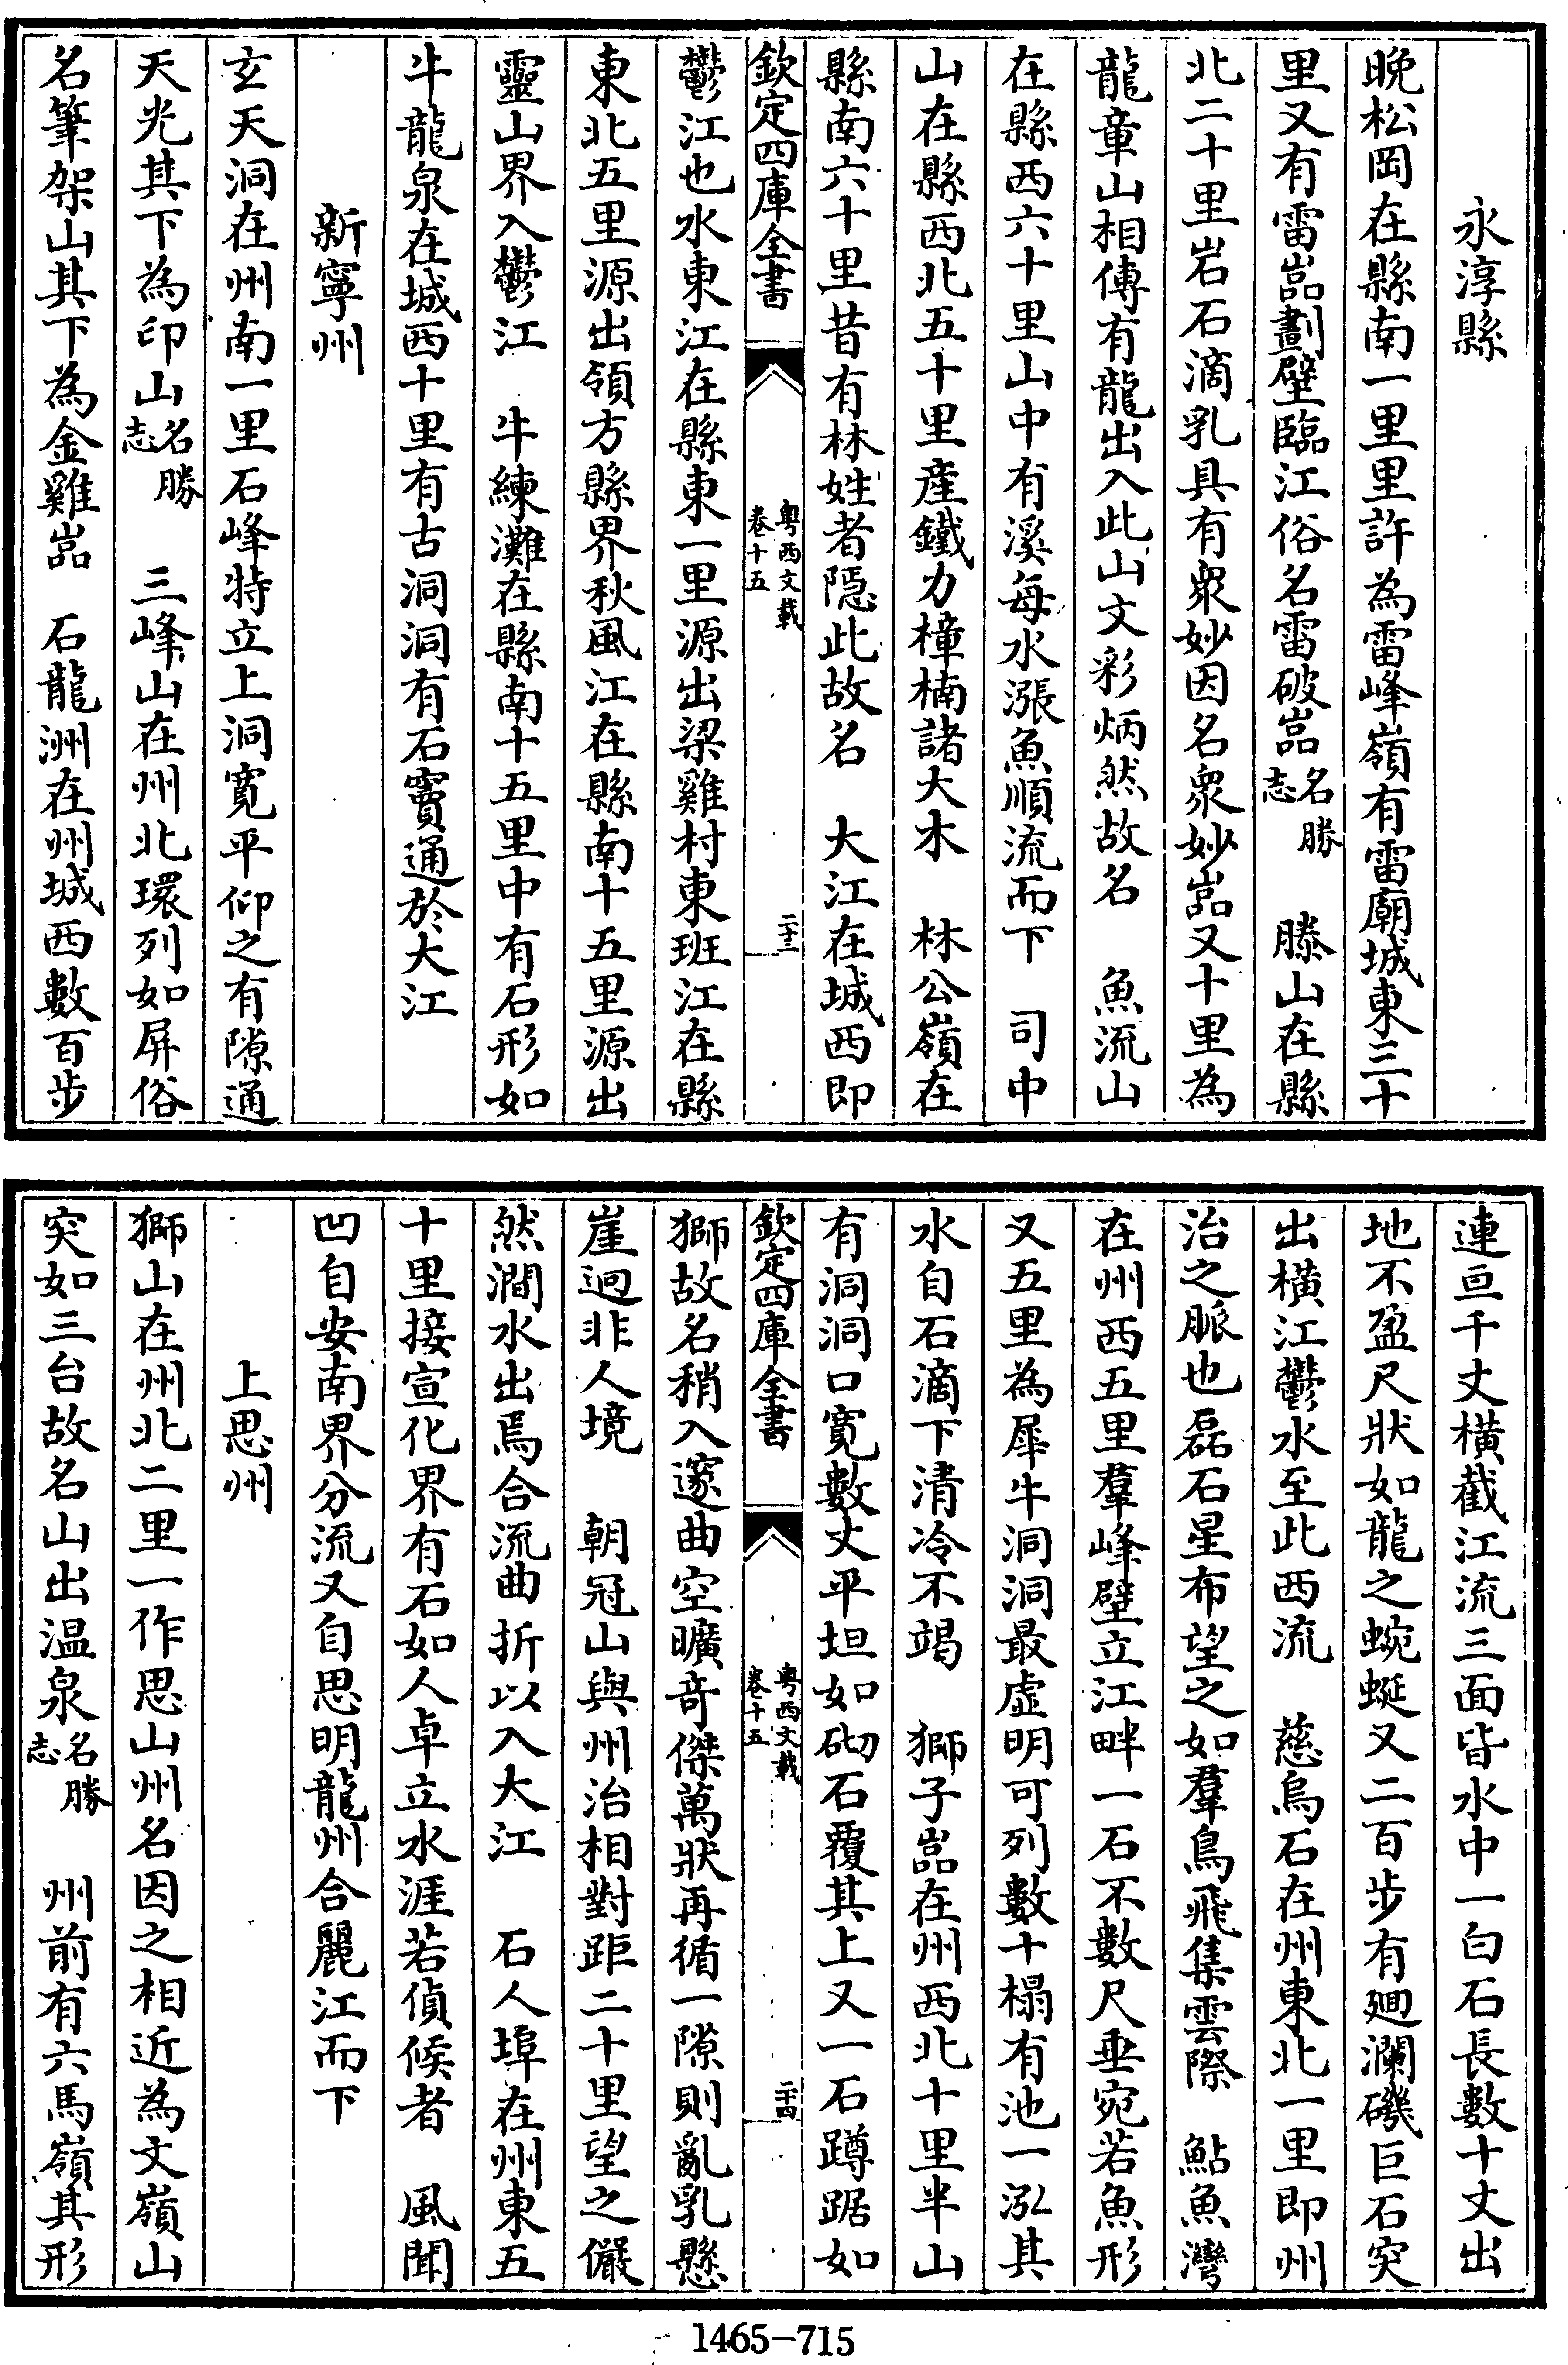 永淳縣
晚松岡在縣南一里里許為雷峰嶺有雷廟城東三十
里又有雷嵒劃壁臨江俗名雷破嵒名勝志　滕山在縣
北二十里岩石滴乳具有衆妙因名衆妙嵒又十里為
龍章山相傳有龍出入此山文彩炳然故名　魚流山
在縣西六十里山中有溪每水漲魚順流而下　司中
山在縣西北五十里産鐵力樟楠諸大木　林公嶺在
縣南六十里昔有林姓者隱此故名　大江在城西即
欽定四庫全書　粤西文載卷十五　二十三
鬱江也水東江在縣東一里源出梁雞村東班江在縣
東北五里源出領方縣界秋風江在縣南十五里源出
靈山界入鬱江　牛練灘在縣南十五里中有石形如
牛龍泉在城西十里有古洞洞有石竇通於大江
新寧州
玄天洞在州南一里石峰特立上洞寬平仰之有隙通
天光其下為印山名勝志　三峰山在州北環列如屏俗
名筆架山其下為金雞嵒　石龍洲在州城西數百步
連亘千丈橫截江流三面皆水中一白石長數十丈出
地不盈尺狀如龍之蜿蜒又二百步有廻瀾磯巨石突
出橫江鬱水至此西流　慈烏石在州東北一里即州
治之脈也磊石星布望之如羣鳥飛集雲際　鮎魚灣
在州西五里羣峰壁立江畔一石不數尺垂宛若魚形
又五里為犀牛洞洞最虛明可列數十榻有池一泓其
水自石滴下清冷不竭　獅子嵒在州西北十里半山
有洞洞口寬數丈平坦如砌石覆其上又一石蹲踞如
欽定四庫全書　粤西文載卷十五　二十四
獅故名稍入邃曲空曠竒傑萬狀再循一隙則亂乳懸
崖迥非人境　朝冠山與州治相對距二十里望之儼
然澗水出焉合流曲折以入大江　石人埠在州東五
十里接宣化界有石如人卓立水涯若偵候者　風聞
凹自安南界分流又自思明龍州合麗江而下
上思州
獅山在州北二里一作思山州名因之相近為文嶺山
突如三台故名山出温泉名勝志　州前有六馬嶺其形
1465-715